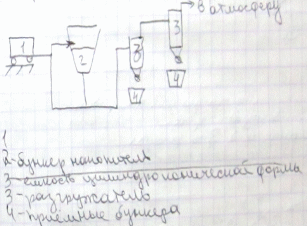 в атмосферу
1
2
3
3
4
4
1
2-бункер накопитель
3-емкость цилиндроконической формы
3-разгружатель
4-приемные бункера